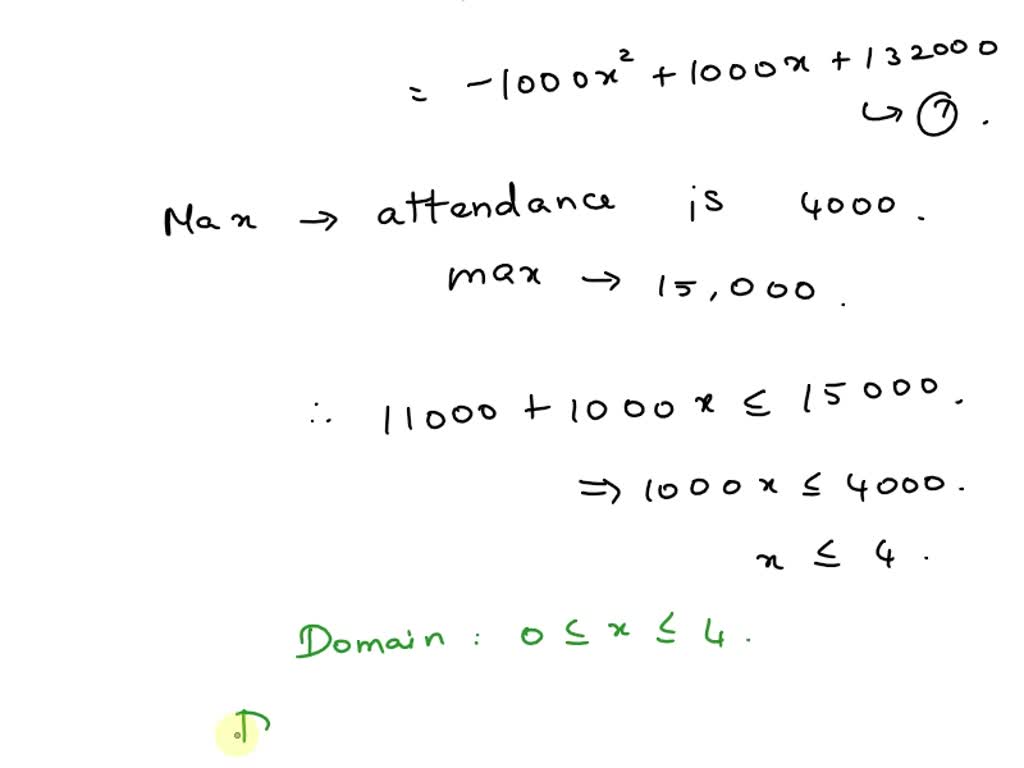 = -1000x² + 1000x + 132000
↳ ① .
Max → attendance is 4000 .
max → 15,000 .
∴ 11000 + 1000x ≤ 15000 .
⇒ 1000x ≤ 4000 .
x ≤ 4 .
Domain : 0 ≤ x ≤ 4 .